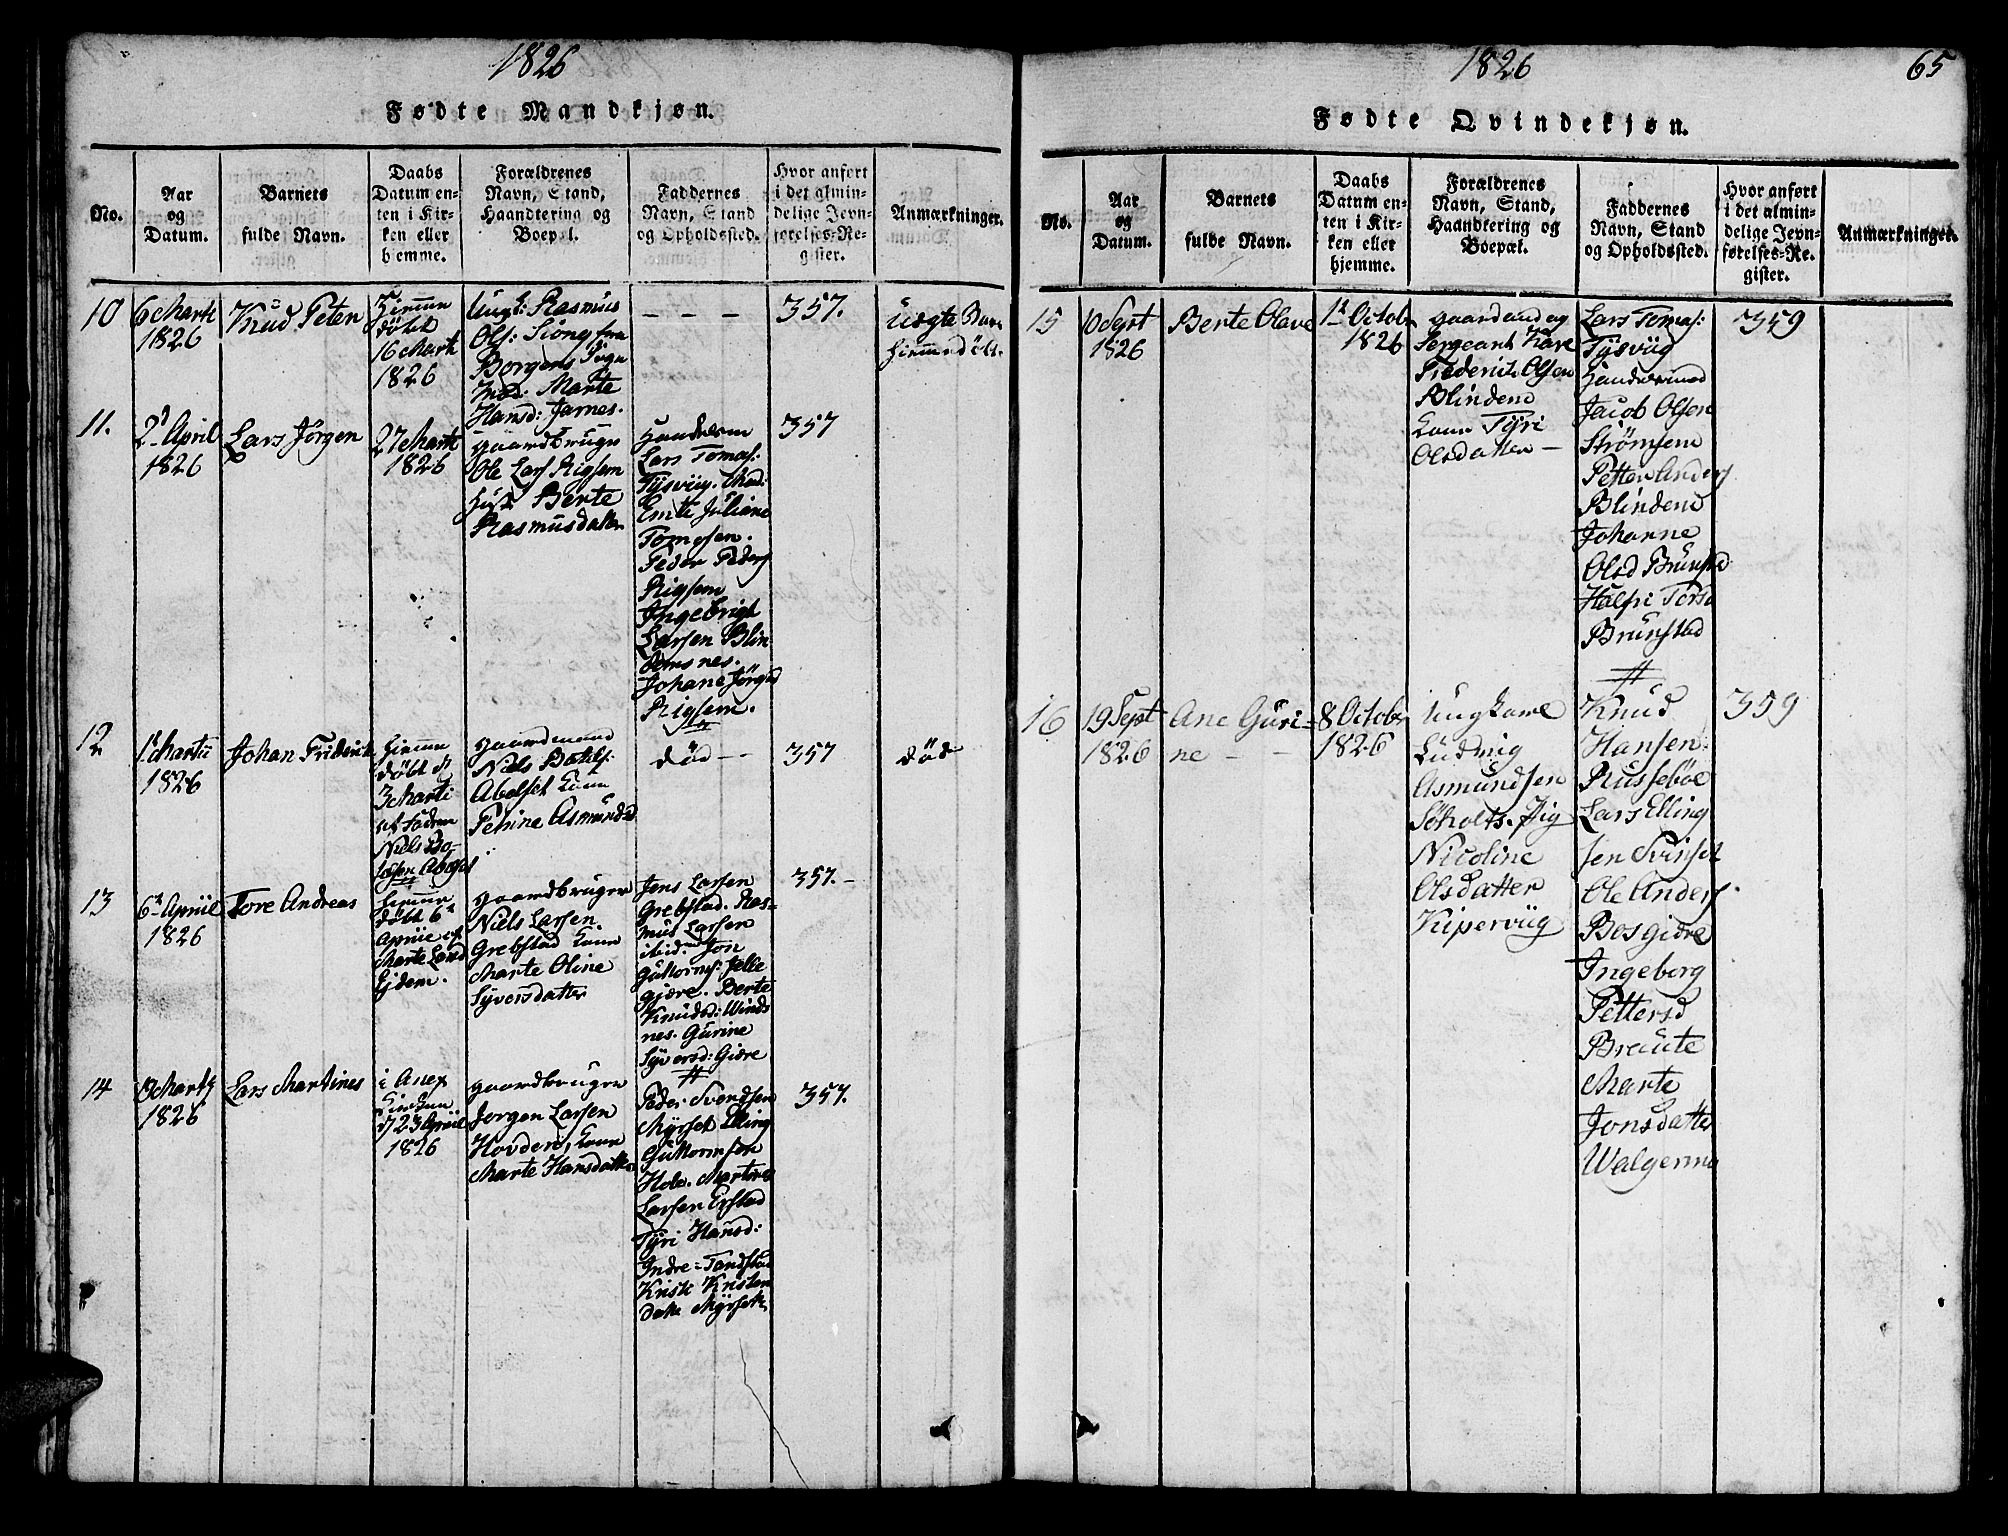 1826
Fødte Mandkjøn.
No.
Aar
og
Datum.
Barnets
fulde Navn.
Daabs
Datum en-
ten i Kir-
ken eller
hjemme.
Forældrenes
Navn, Stand,
Haandtering og
Boepæl.
Faddernes
Navn, Stand
og Opholdssted.
Hvor anført
i det almin-
delige Jevn-
førelses-Re-
gister.
Anmærkninger.
10
6 Marti
1826
Knud Peter
Hiemme
døbt
16 Marti
1826
Ungk: Rasmus
Ols: Siong fra
Borgens Sogn
Mod: Marte
Hansd: Jarnes.
— — —
357.
Uegte Barn
hiemmedøbt.
11.
2 April
1826
Lars Jørgen
27 Marti
1826
Gaardbruger
Ole Lars Rigsem
Hust. Berte
Rasmusdatter
Lars Tomas:
Tysvüg. Mad:
Emte Juliane
Tomesen.
Peder Peders
Rigsem
Ingebrigt
Larsen Blin
demsnes.
Johane Jørgsd
Rigsem.
357
12
1 Martii
1826
Johan Friderick
hiemme
døbt d
3 Marti
af Faderen
Niels Bo-
Gaardmand
Niels
Abelset Kone
Petrine Asmundsd
død — —
357
død
13
6 Apriil
1826
Tore Andreas
hiemme
døbt 6
Apriil af
Marte Land
Ejdem.
Gaardbruger
Niels Larsen
Grebstad Kone
Marte Oline
Syversdatter
Jens Larsen
Grebstad. Ras-
mus Larsen
ibid. Jon
Guttorms: Jelle
gjære. Berte
Knudsd: Winds
nes. Gurine
Syversd: Giere
357.—
14
Martz
1826
Lars Martines
i Anex
Kirken
d 23 Apriil
1826
Gaardbruger
Jorgen Larsen
Hovden, Kone
Marte Hansdatter
Peder Svendsen
Myrset Elling
Guttormsen
Hole. Martines
Larsen Erstad
Tyri Hansd:
Indre-Tandstad
Kristi Kristen
datt Myrset
357.
1826
65
Fødte Qvindekjøn.
No.
Aar
og
Datum.
Barnets
fulde Navn.
Daabs
Datum en-
ten i Kir-
ken eller
hjemme.
Forældrenes
Navn, Stand,
Haandtering og
Boepæl.
Faddernes
Navn, Stand
og Opholdssted.
Hvor anført
i det almin-
delige Jevn-
førelses-Re-
gister.
Anmærkninger.
15
10 Sept
1826
Berte Olave
1 Octob
1826
Gaardmand og
Sergeant Kare
Frederik Olsen
Blindem
Kone Tyri
Olsdatter —
Lars Tomas:
Tysvüg
Jacob Olsen
Strømsem
Petter Anders
Blindem
Johanne
Olsd Brunstad
Halfri Torsd
Brunstad
359
16
19 Sept
1826
Ane Guri-
ne —
8 Octobr
1826
Ungkarl
Ludvig
Asmundsen
Søholts. Pig
Nicoline
Olsdatter
Kipervüg
Knud
Hansen
Russebøe
Lars Elling
sen Svinset
Ole Anders
Bosgiære
Ingeborg
Pettersd
Braute
Marte
Jonsdatter
Walgermo
359